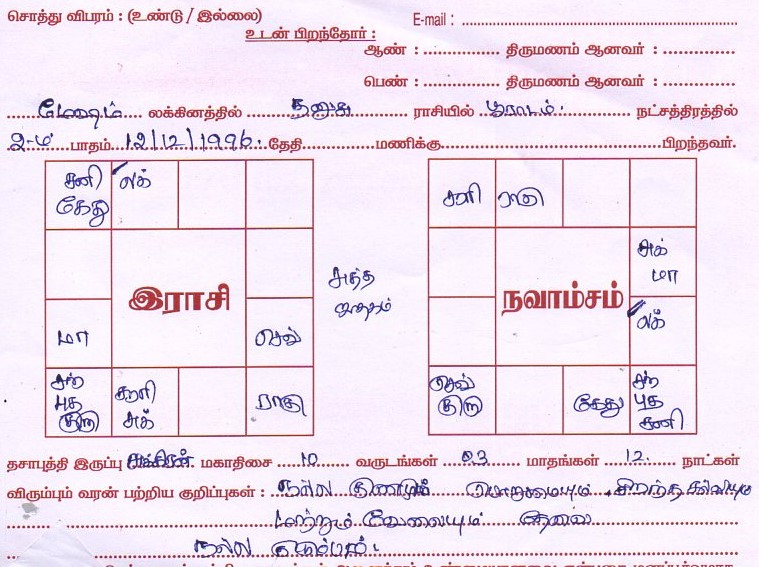 சொத்து விபரம் : (உண்டு / இல்லை) E-mail :
உடன் பிறந்தோர் :
ஆண் : திருமணம் ஆனவர் :
பெண் : திருமணம் ஆனவர் :
மேஷம் லக்கினத்தில் தனுசு ராசியில் பூராடம். நட்சத்திரத்தில்
2-ம் பாதம் 12/12/1996. தேதி மணிக்கு பிறந்தவர்.
சனி கேது
லக்
இராசி
மா
செவ்
சந் புத குரு
சூரி சுக்
ராகு
சுத்த ஜாதகம்
சூரி
ராகு
சுக் மா
நவாம்சம்
லக்
செவ் குரு
கேது
சந் புத சனி
தசாபுத்தி இருப்பு சுக்கிரன் மகாதிசை 10 வருடங்கள் 03 மாதங்கள் 12. நாட்கள்
விரும்பும் வரன் பற்றிய குறிப்புகள் : நல்ல குணமும் பொறுமையும், சிறந்த கல்வியும்
மற்றும் வேலையும் தேவை
நல்ல குடும்பம்.